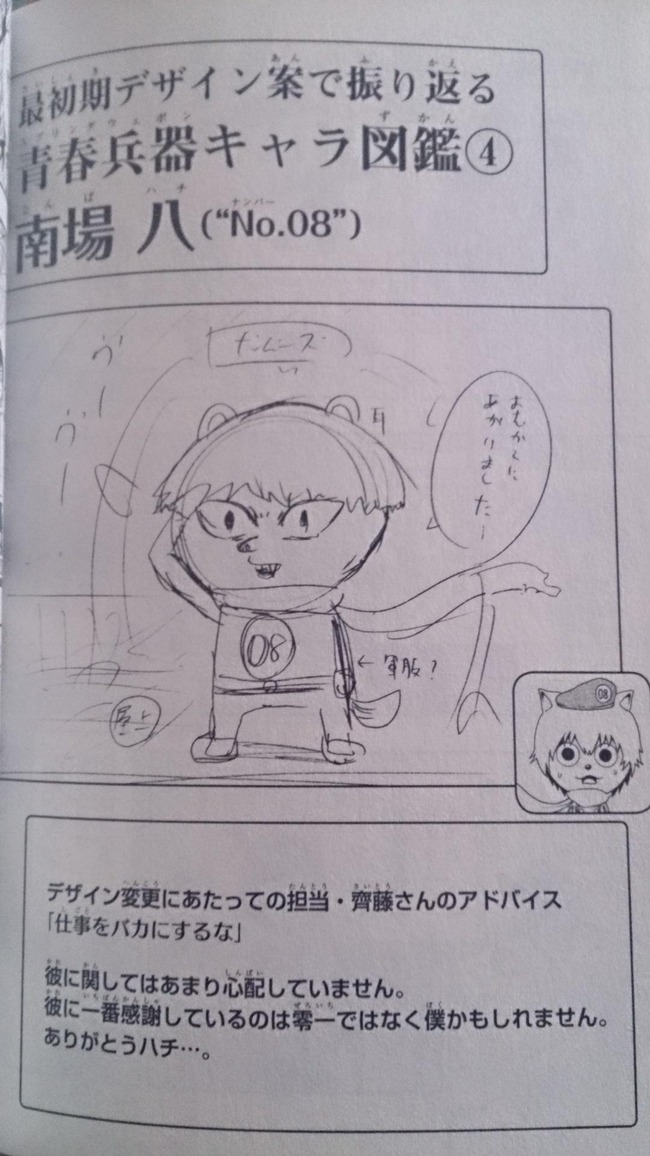 最初期デザイン案で振り返る
青春兵器キャラ図鑑④
南場 八(“No.08”)
ヴー
ヴー
耳
おむかえに
あがりましたー
08
←軍服?
屋上
08
デザイン変更にあたっての担当・齊藤さんのアドバイス
「仕事をバカにするな」
彼に関してはあまり心配していません。
彼に一番感謝しているのは零一ではなく僕かもしれません。
ありがとうハチ…。